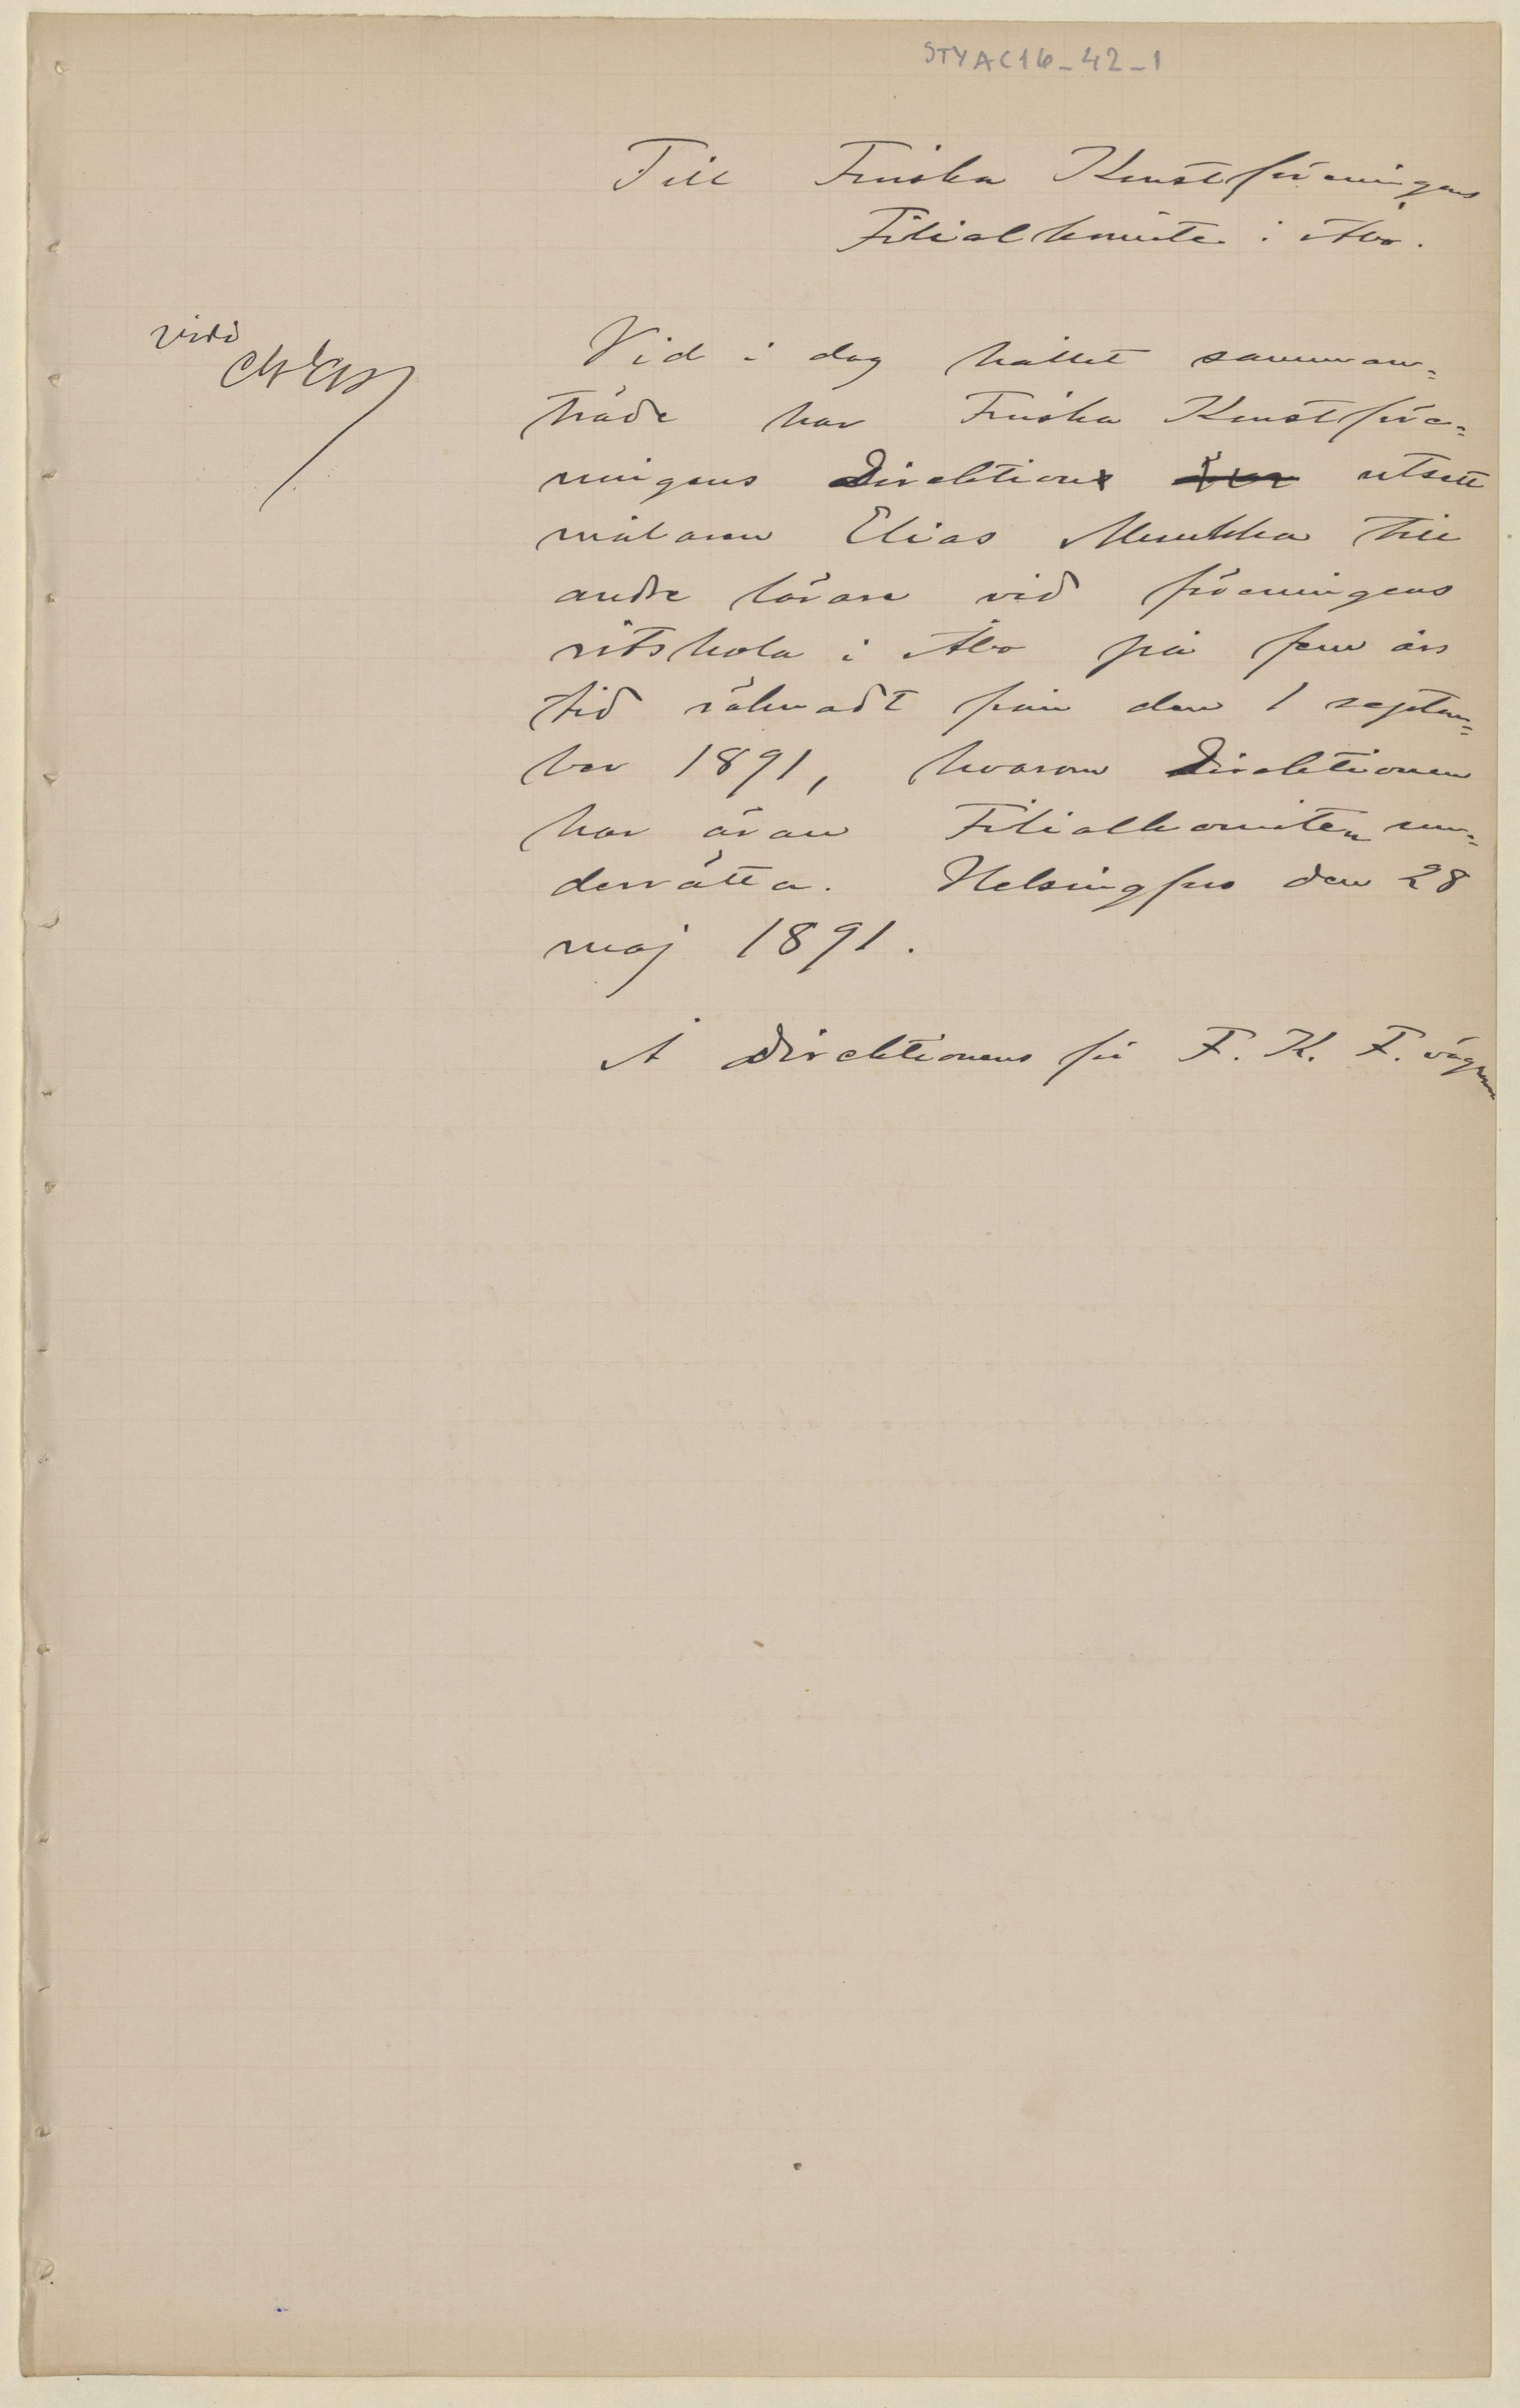 STYAC16_42_1
Till Finska Konstföreningens
Filialkomite i Åbo.
vidi
Vid i dag hållet samman=
träde har Finska Konstföre=
ningens Direktion utsett
målaren Elias Muukka till
andre lärare vid föreningens
ritskola i Åbo på fem års
tid räknadt från den 1 septem=
ber 1891, hvarom Direktionen
har äran Filialkomiten un=
derrätta. Helsingfors den 28
maj 1891.
Å Direktionens för F. K. F. vägnar